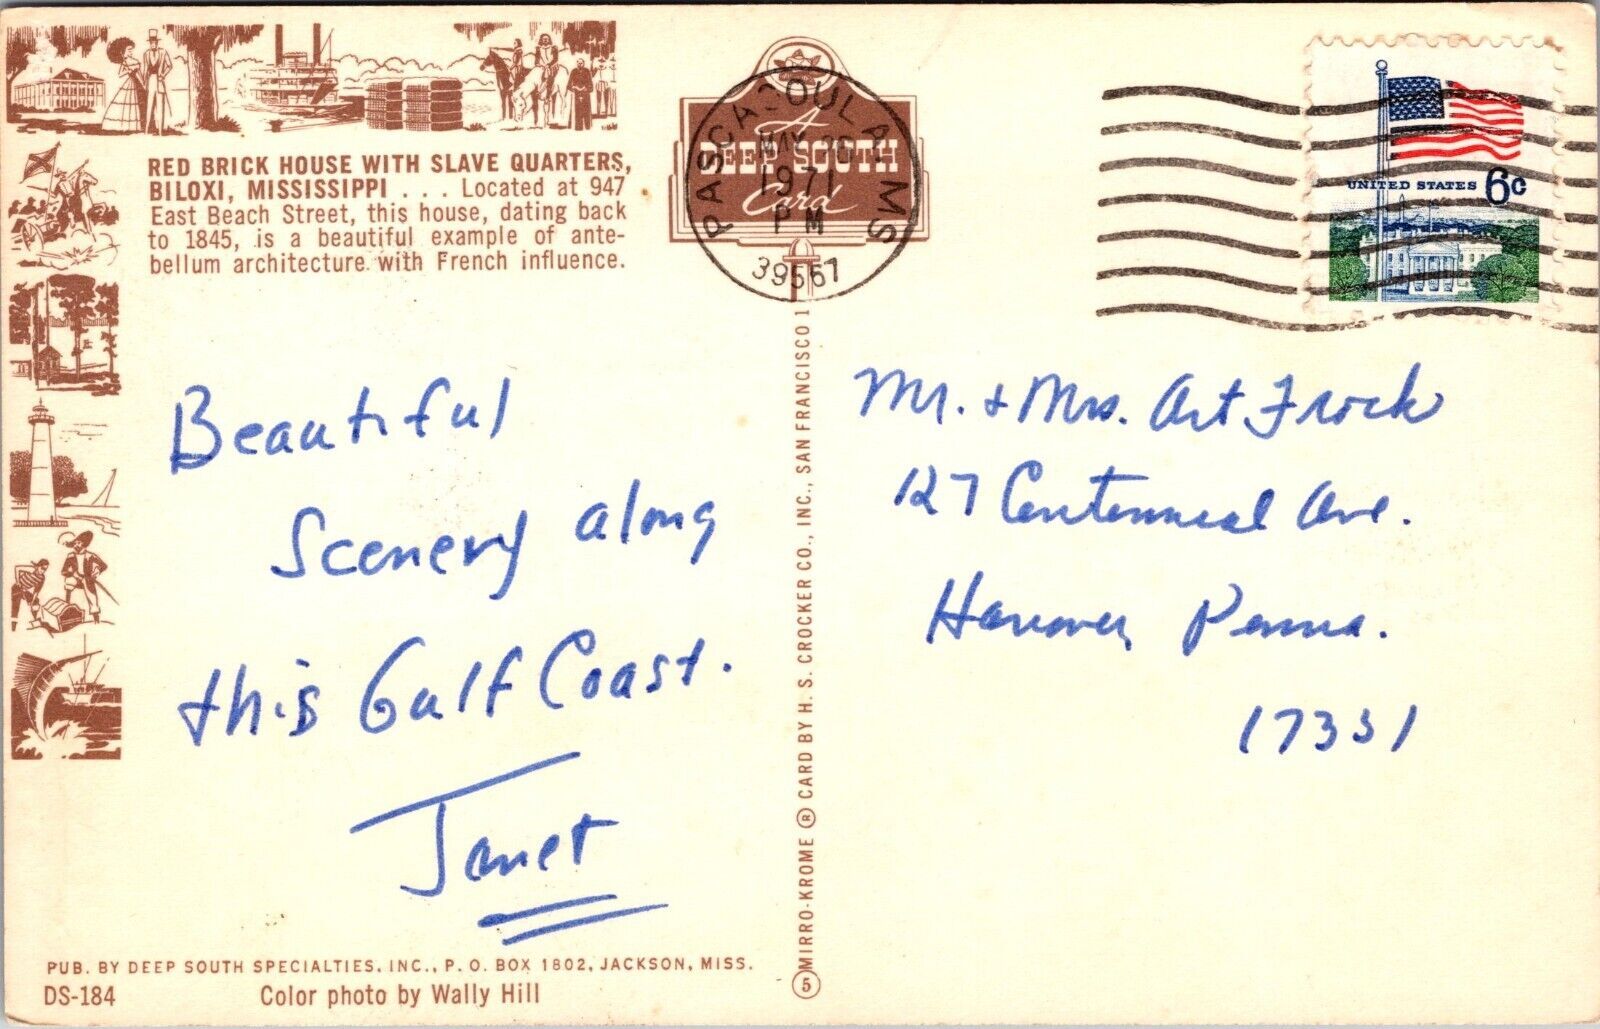 RED BRICK HOUSE WITH SLAVE QUARTERS,
BILOXI, MISSISSIPPI . . . Located at 947
East Beach Street, this house, dating back
to 1845, is a beautiful example of ante-
bellum architecture with French influence.
A
DEEP SOUTH
Card
PASCAGOULA, MS
MAY 26
1971
PM
39567
UNITED STATES 6c
Beautiful
Scenery along
this Gulf Coast.
Janet
Mr. & Mrs. Art Frock
127 Centennial Ave.
Hanover, Penna.
17331
MIRRO-KROME ® CARD BY H. S. CROCKER CO., INC., SAN FRANCISCO 1
5
PUB. BY DEEP SOUTH SPECIALTIES, INC., P. O. BOX 1802, JACKSON, MISS.
DS-184 Color photo by Wally Hill